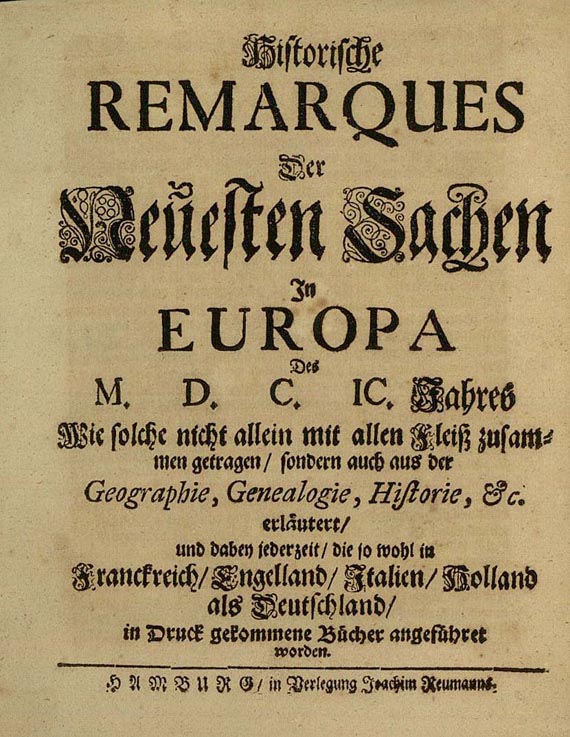 Historische
REMARQUES
Der
Neuesten Sachen
In
EUROPA
Des
M. D. C. IC. Jahres
Wie solche nicht allein mit allen Fleiß zusam=
men getragen/ sondern auch aus der
Geographie, Genealogie, Historie, &c.
erläutert/
und dabey jederzeit/ die so wohl in
Franckreich/ Engelland/ Italien/ Holland
als Deutschland/
in Druck gekommene Bücher angeführet
worden.
HAMBURG/ in Verlegung Joachim Reumanns.